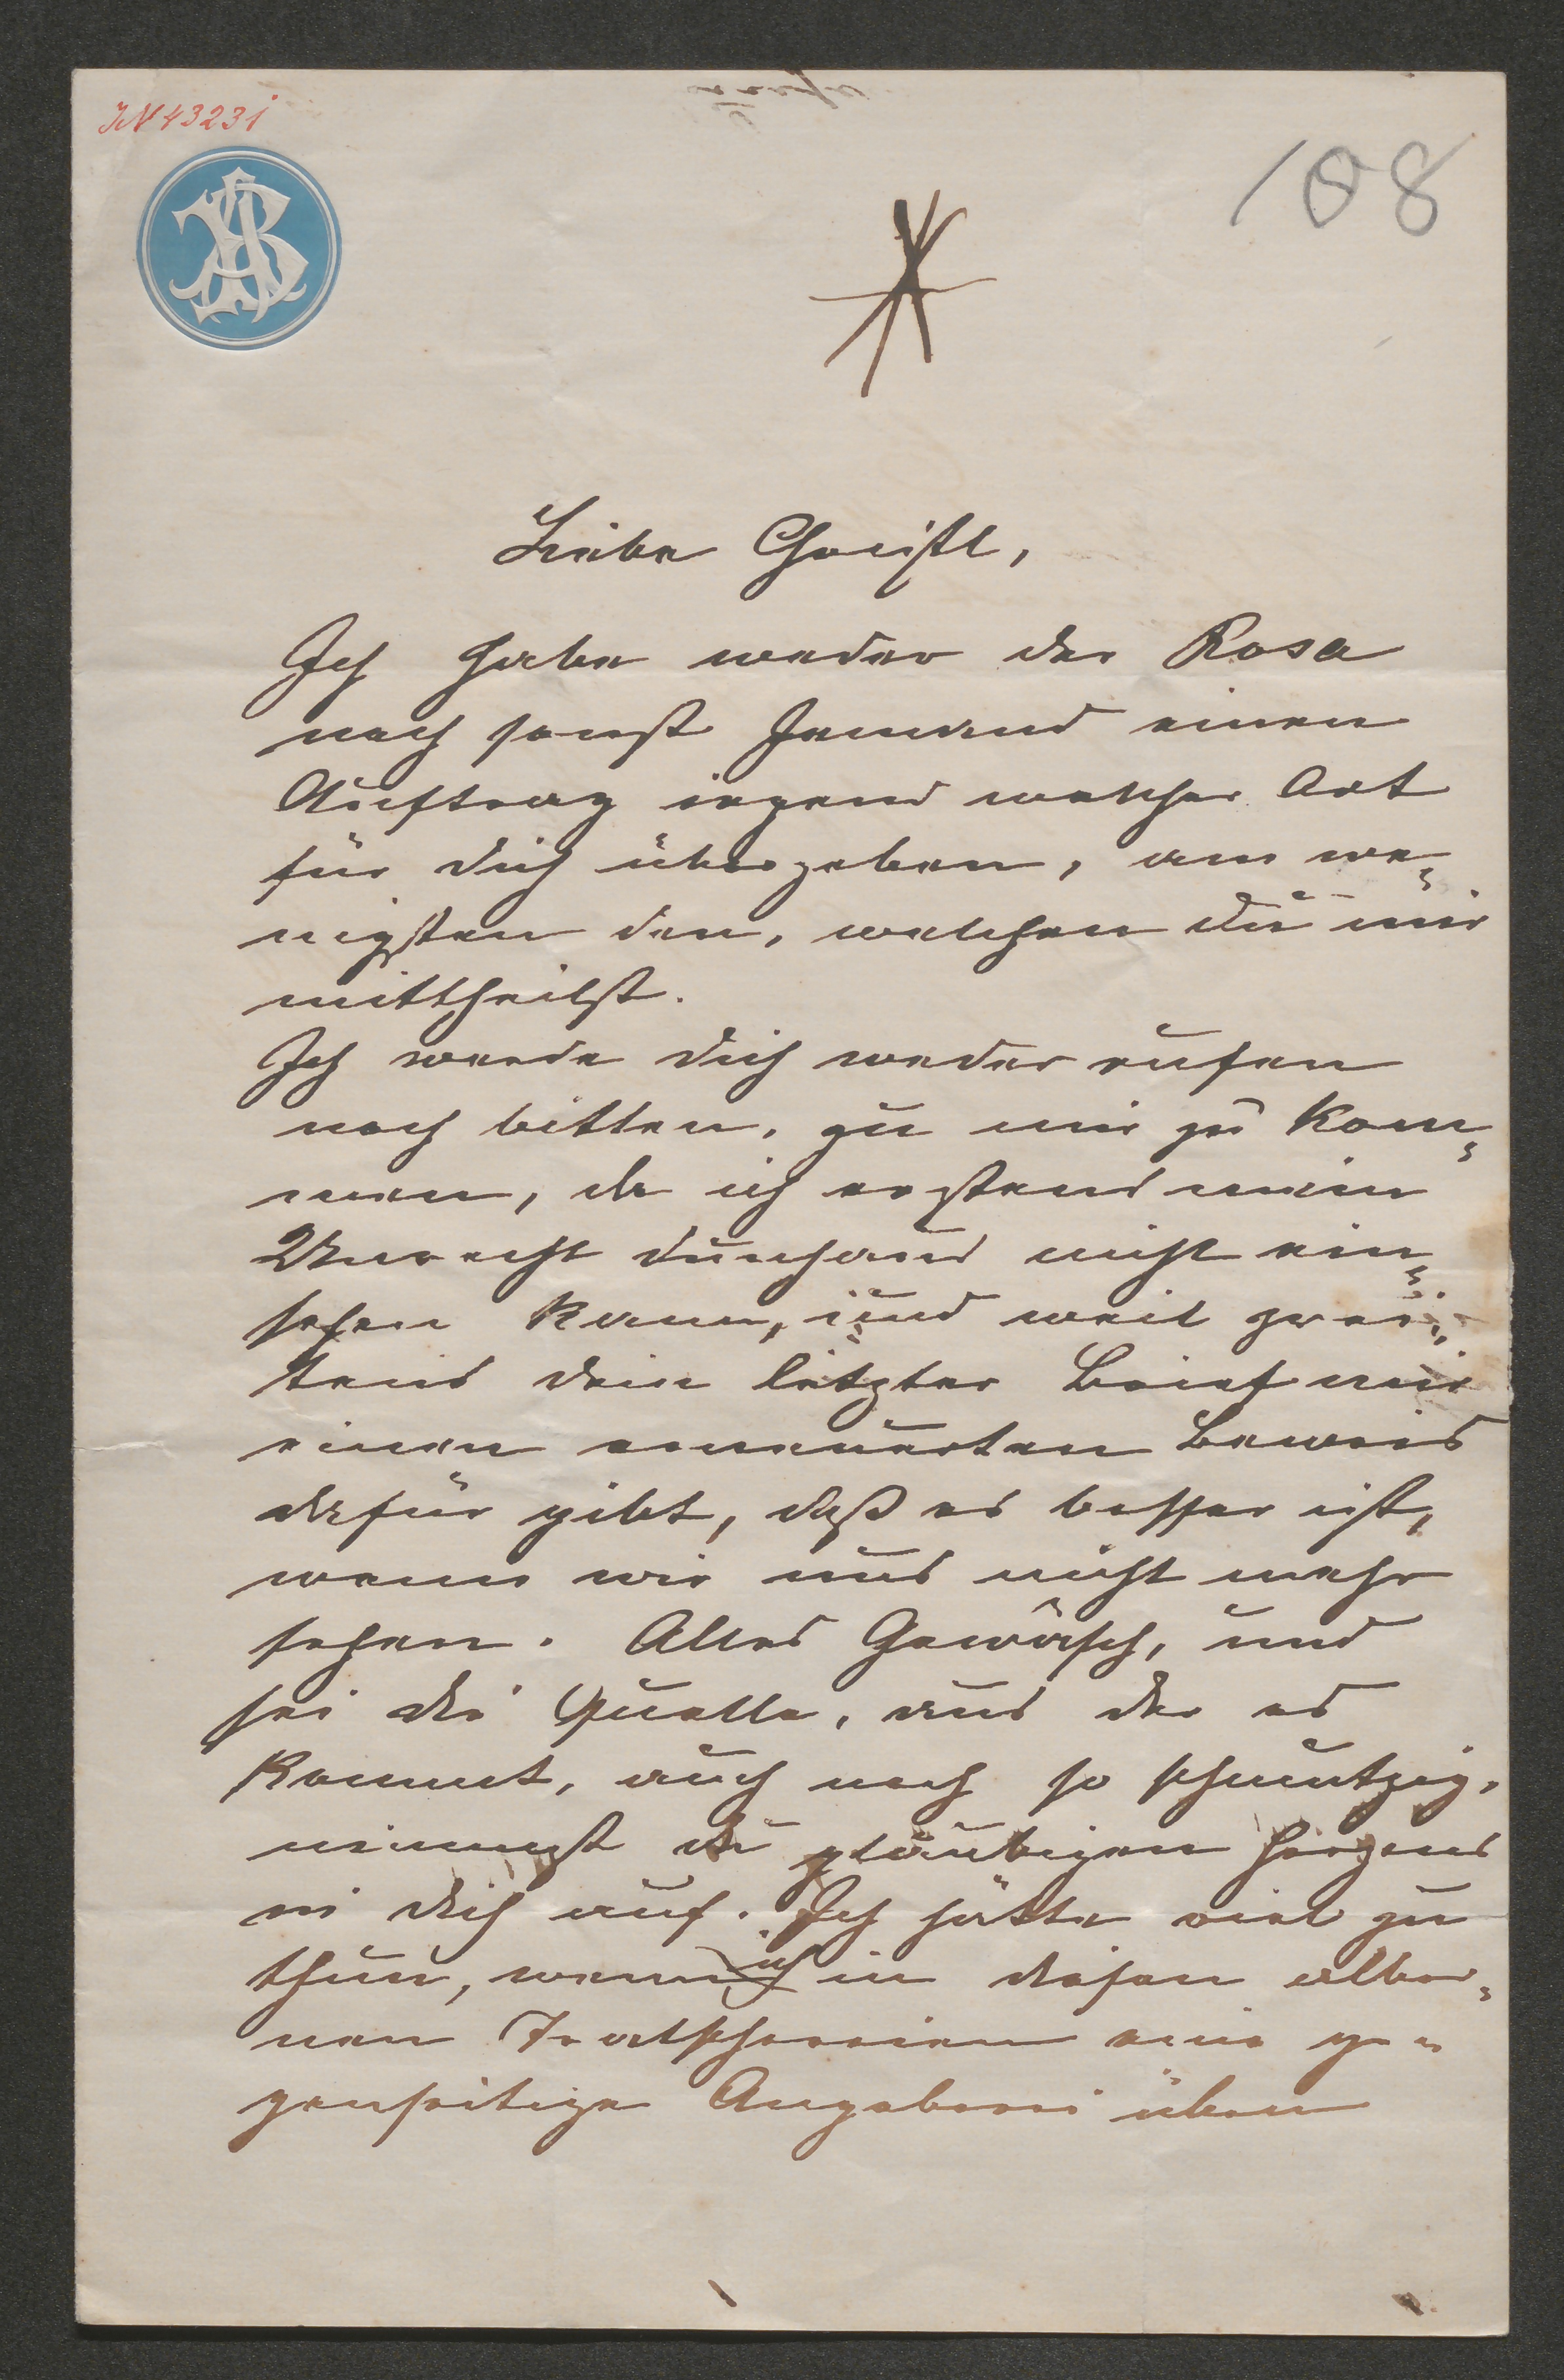 IN 43231
108
Liebe Christl,
Ich habe weder der Rosa
noch sonst Jemand einen
Auftrag irgend welcher Art
für dich übergeben, am we-
nigsten den, welchen du mir
mittheilst.
Ich werde dich weder rufen
noch bitten, zu mir zu kom-
men, da ich erstens mein
Unrecht durchaus nicht ein-
sehen kann, und weil zwei-
tens dein letzter Brief mir
einen erneuerten Beweis
dafür gibt, daß es besser ist,
wenn wir uns nicht mehr
sehen. Alles Gewäsch, und
sei die Quelle, aus der es
kommt, auch noch so schmutzig,
nimmst du gläubigen Herzens
in dich auf. Ich hätte viel zu
thun, wenn ich in diesen alber-
nen Tratschereien eine ge-
genseitige Angeberei üben